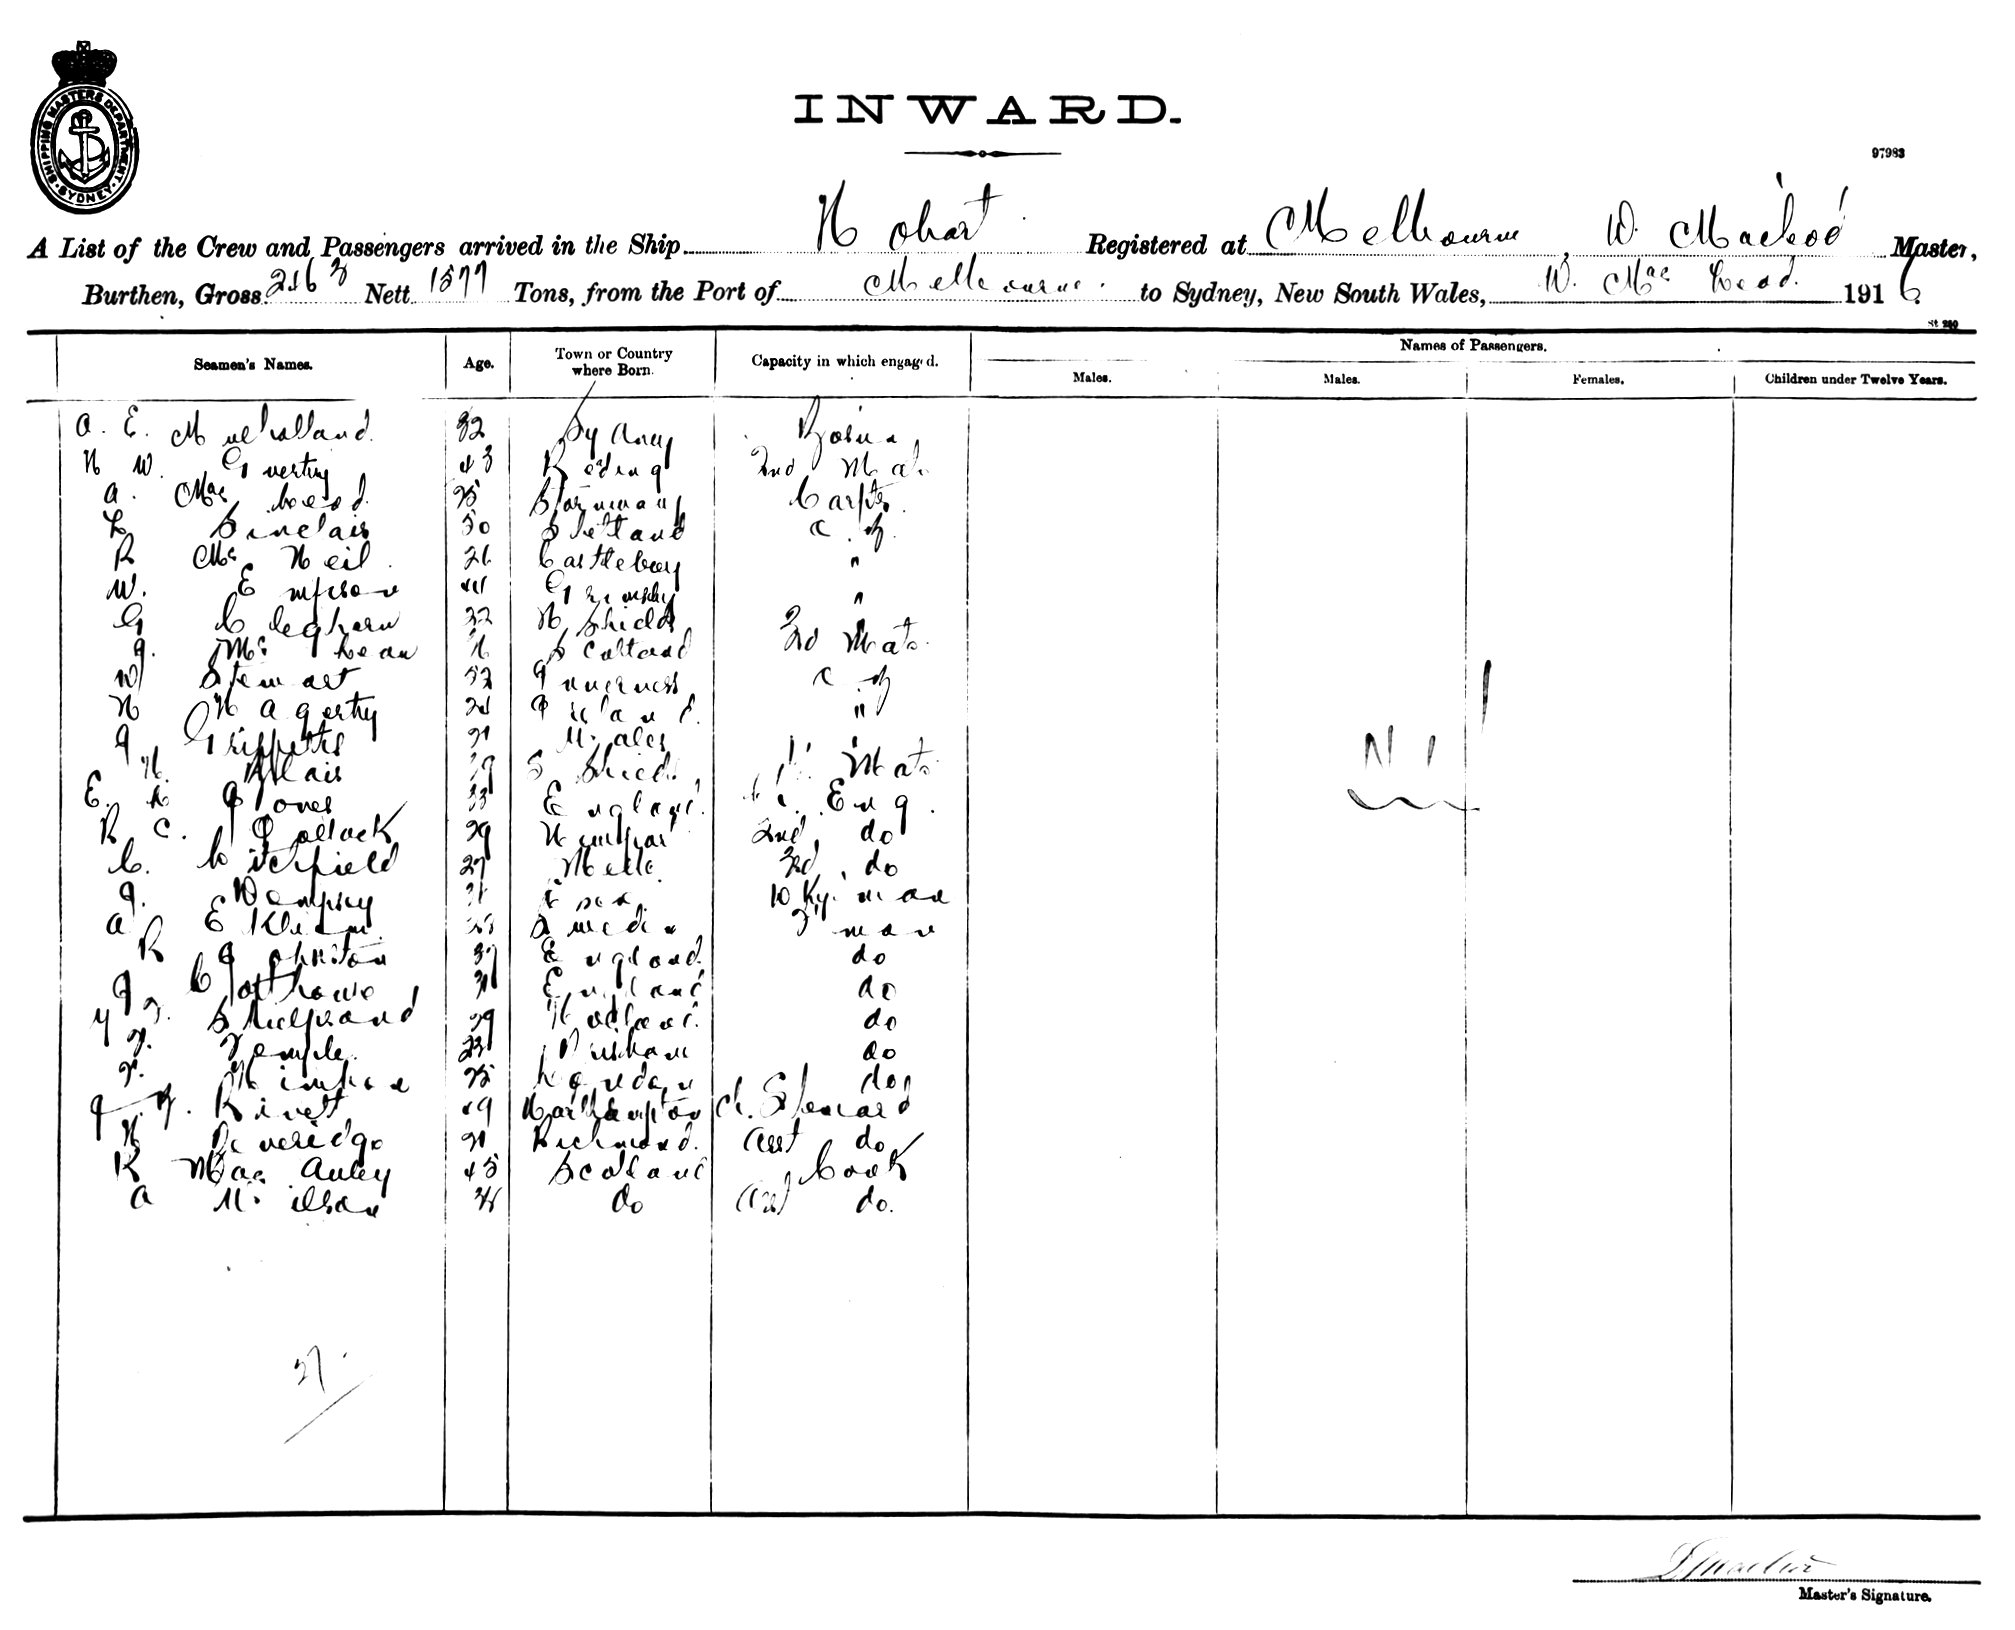 SHIPPING MASTERS DEPARTMENT. SYDNEY
INWARD.
97983
A List of the Crew and Passengers arrived in the Ship Hobart Registered at Melbourne, W. MacLeod Master,
Burthen, Gross 2163 Nett 1577 Tons, from the Port of Melbourne. to Sydney, New South Wales, W. Mac Leod. 1916
St 280
Seamen's Names. Age. Town or Country where Born. Capacity in which engaged. Names of Passengers.
Males. Males. Females. Children under Twelve Years.
A. E. Mulholland. 32 Sydney Bosun
H W. 43 Reding 2nd Mate
A. Mac Leod. Stornoway Carptr.
L Sinclair 50 Shetland
R Mc Neil. 26 Castlebay "
W. Empson 44 Grimsby "
G Cleghorn 32 N Shields
J. Mc Lean Scotland 3rd Mate
W Stewart 52 Inverness
H Hagerty Ireland. "
J Griffiths Wales "
H. Blair S Shields Mate
E. L Jones 33 England. Eng.
R C. Pollack 29 2nd do
C. Litchfield 27 Melb. 3rd do
J. Dempsey Dkyman
A Sweden F man
R Johnston England. do
J England do
Holland. do
F. Temple. do
London do
Rivett 49 Northampton Ch. Steward
H Beveridge 21 Richmond. Asst do
R Mac Auley 45 Scotland Cook
A Wilson do Asst do.
Nil
27.
Master's Signature.